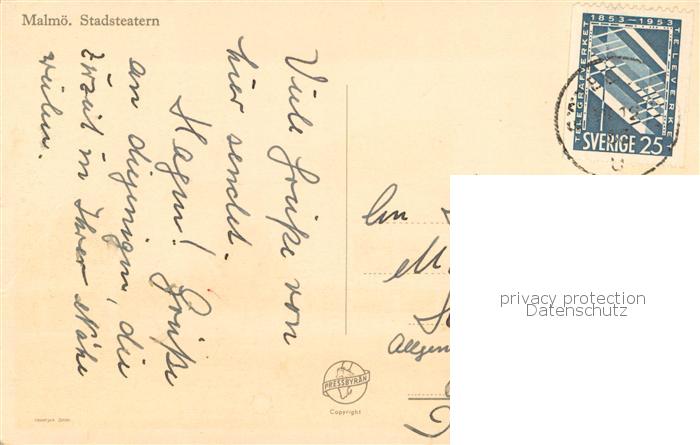 Malmö. Stadsteatern
Viele Grüße von
hier sendet
Hagen! Grüße
an diejenigen, die
zurzeit in Ihrer Nähe
weilen.
1853-1953
TELEGRAFVERKET
TELEVERKET
SVERIGE 25
An
Allgem
PRESSBYRÅN
Copyright
privacy protection
Datenschutz